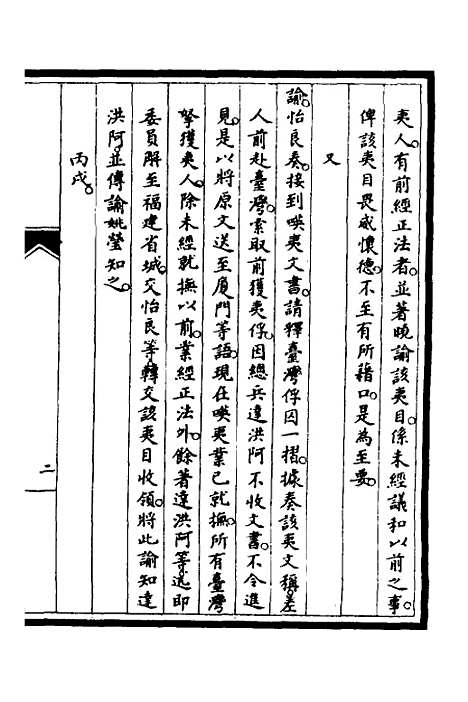 夷人。有前經正法者。並著曉諭該夷目。係未經議和以前之事。
俾該夷目畏威懷德。不至有所藉口。是為至要。
又
諭。怡良奏。接到𠸄夷文書。請釋臺灣俘囚一摺。據奏該夷文稱。差
人前赴臺灣。索取前獲夷俘。因總兵達洪阿不收文書。不令進
見。是以將原文送至厦門等語。現在𠸄夷業已就撫。所有臺灣
拏獲夷人。除未經就撫以前。業經正法外。餘著達洪阿等。迅即
委員解至福建省城。交怡良等轉交該夷目收領。將此諭知達
洪阿。並傳諭姚瑩知之。
丙戌。
二